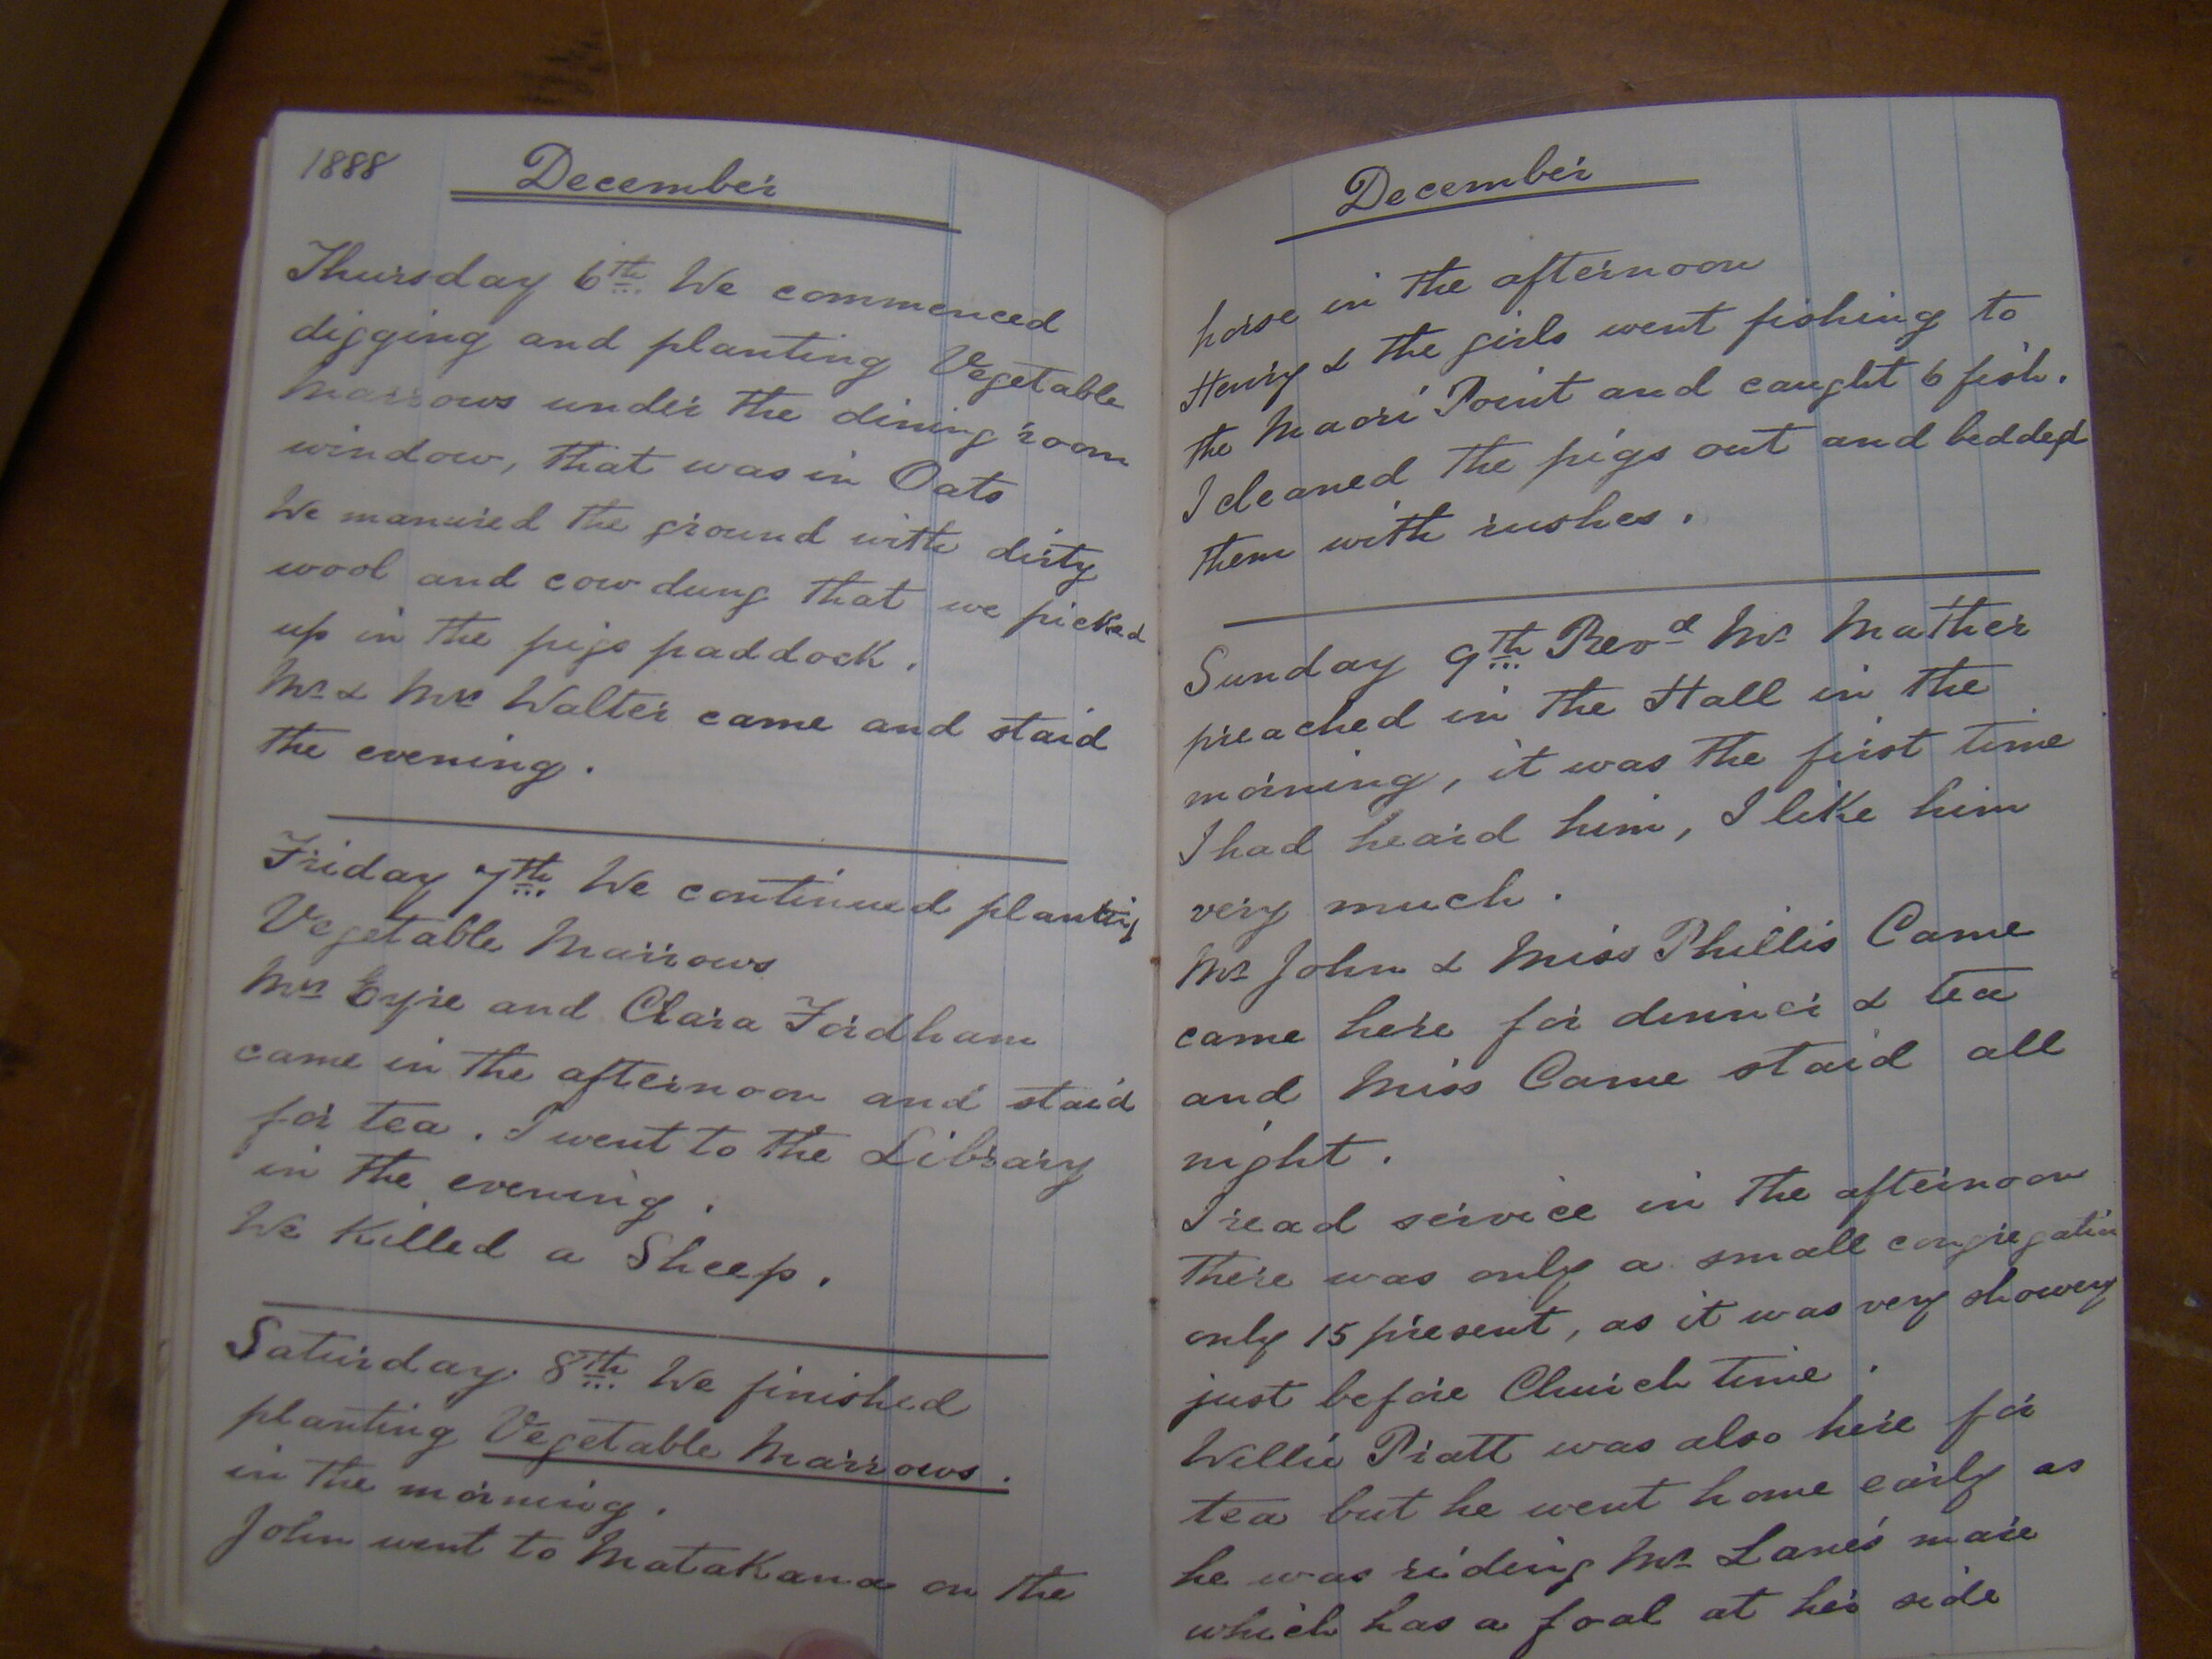 1888 December
Thursday 6th We commenced
digging and planting Vegetable
Marrows under the dining room
window, that was in Oats
We manured the ground with dirty
wool and cow dung that we picked
up in the pigs paddock.
Mr & Mrs Walter came and staid
the evening.
Friday 7th We continued planting
Vegetable Marrows
Mrs Eyre and Clara Fordham
came in the afternoon and staid
for tea. I went to the Library
in the evening.
We Killed a Sheep.
Saturday 8th We finished
planting Vegetable Marrows.
in the morning.
John went to MataKana on the
December
horse in the afternoon
Henry & the girls went fishing to
the Maori Point and caught 6 fish.
I cleaned the pigs out and bedded
them with rushes.
Sunday 9th Revd Mr Mather
preached in the Hall in the
morning, it was the first time
I had heard him, I like him
very much.
Mr John & Miss Phillis Came
came here for dinner & tea
and Miss Came staid all
night.
I read service in the afternoon
there was only a small congregation
only 15 present, as it was very showery
just before Church time.
Willie Pratt was also here for
tea but he went home early as
he was riding Mr Lane's mare
which has a foal at her side